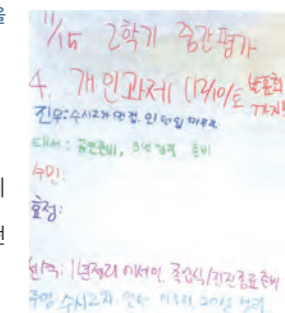 을
11/15 2학기 중간평가
4. 개인과제 (12/10/토 발표회
까지!!
진우: 수시2차 면접, 인턴십 마무리
태서: 공연준비, 3년 정리, 준비
수민:
효정:
에
선
1년정리 에세이, 졸업식/전진종료준비
주영 수시2차, 마무리 3년 정리